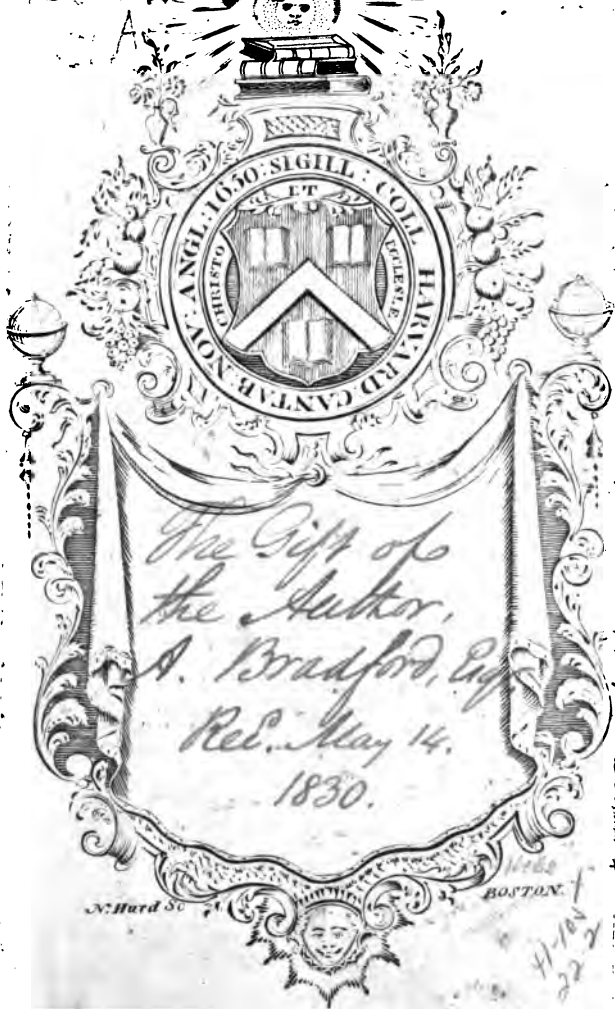 A
SIGILL : COLL HARVARD CANTAB : NOV : ANGL : 1650 :
ET
CHRISTO
ECCLESIÆ
The Gift of
the Author,
A. Bradford, Esq.
Rec. May 14.
1830.
N. Hurd Sc
BOSTON.